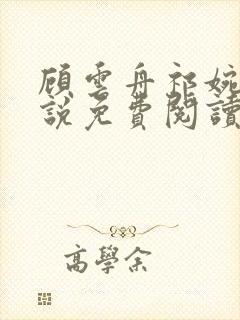 顧雲舟祁婉
說免費閱讀
高學余